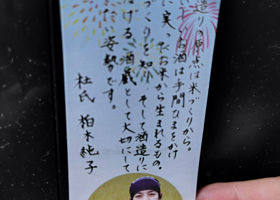 造り原点は米づくりから。
お酒は手間ひまをかけ
に実
お米から生まれるもの。
づくりを知り、そして酒造りに
ける、酒蔵として大切にして
たい姿勢です。
杜氏 柏木純子